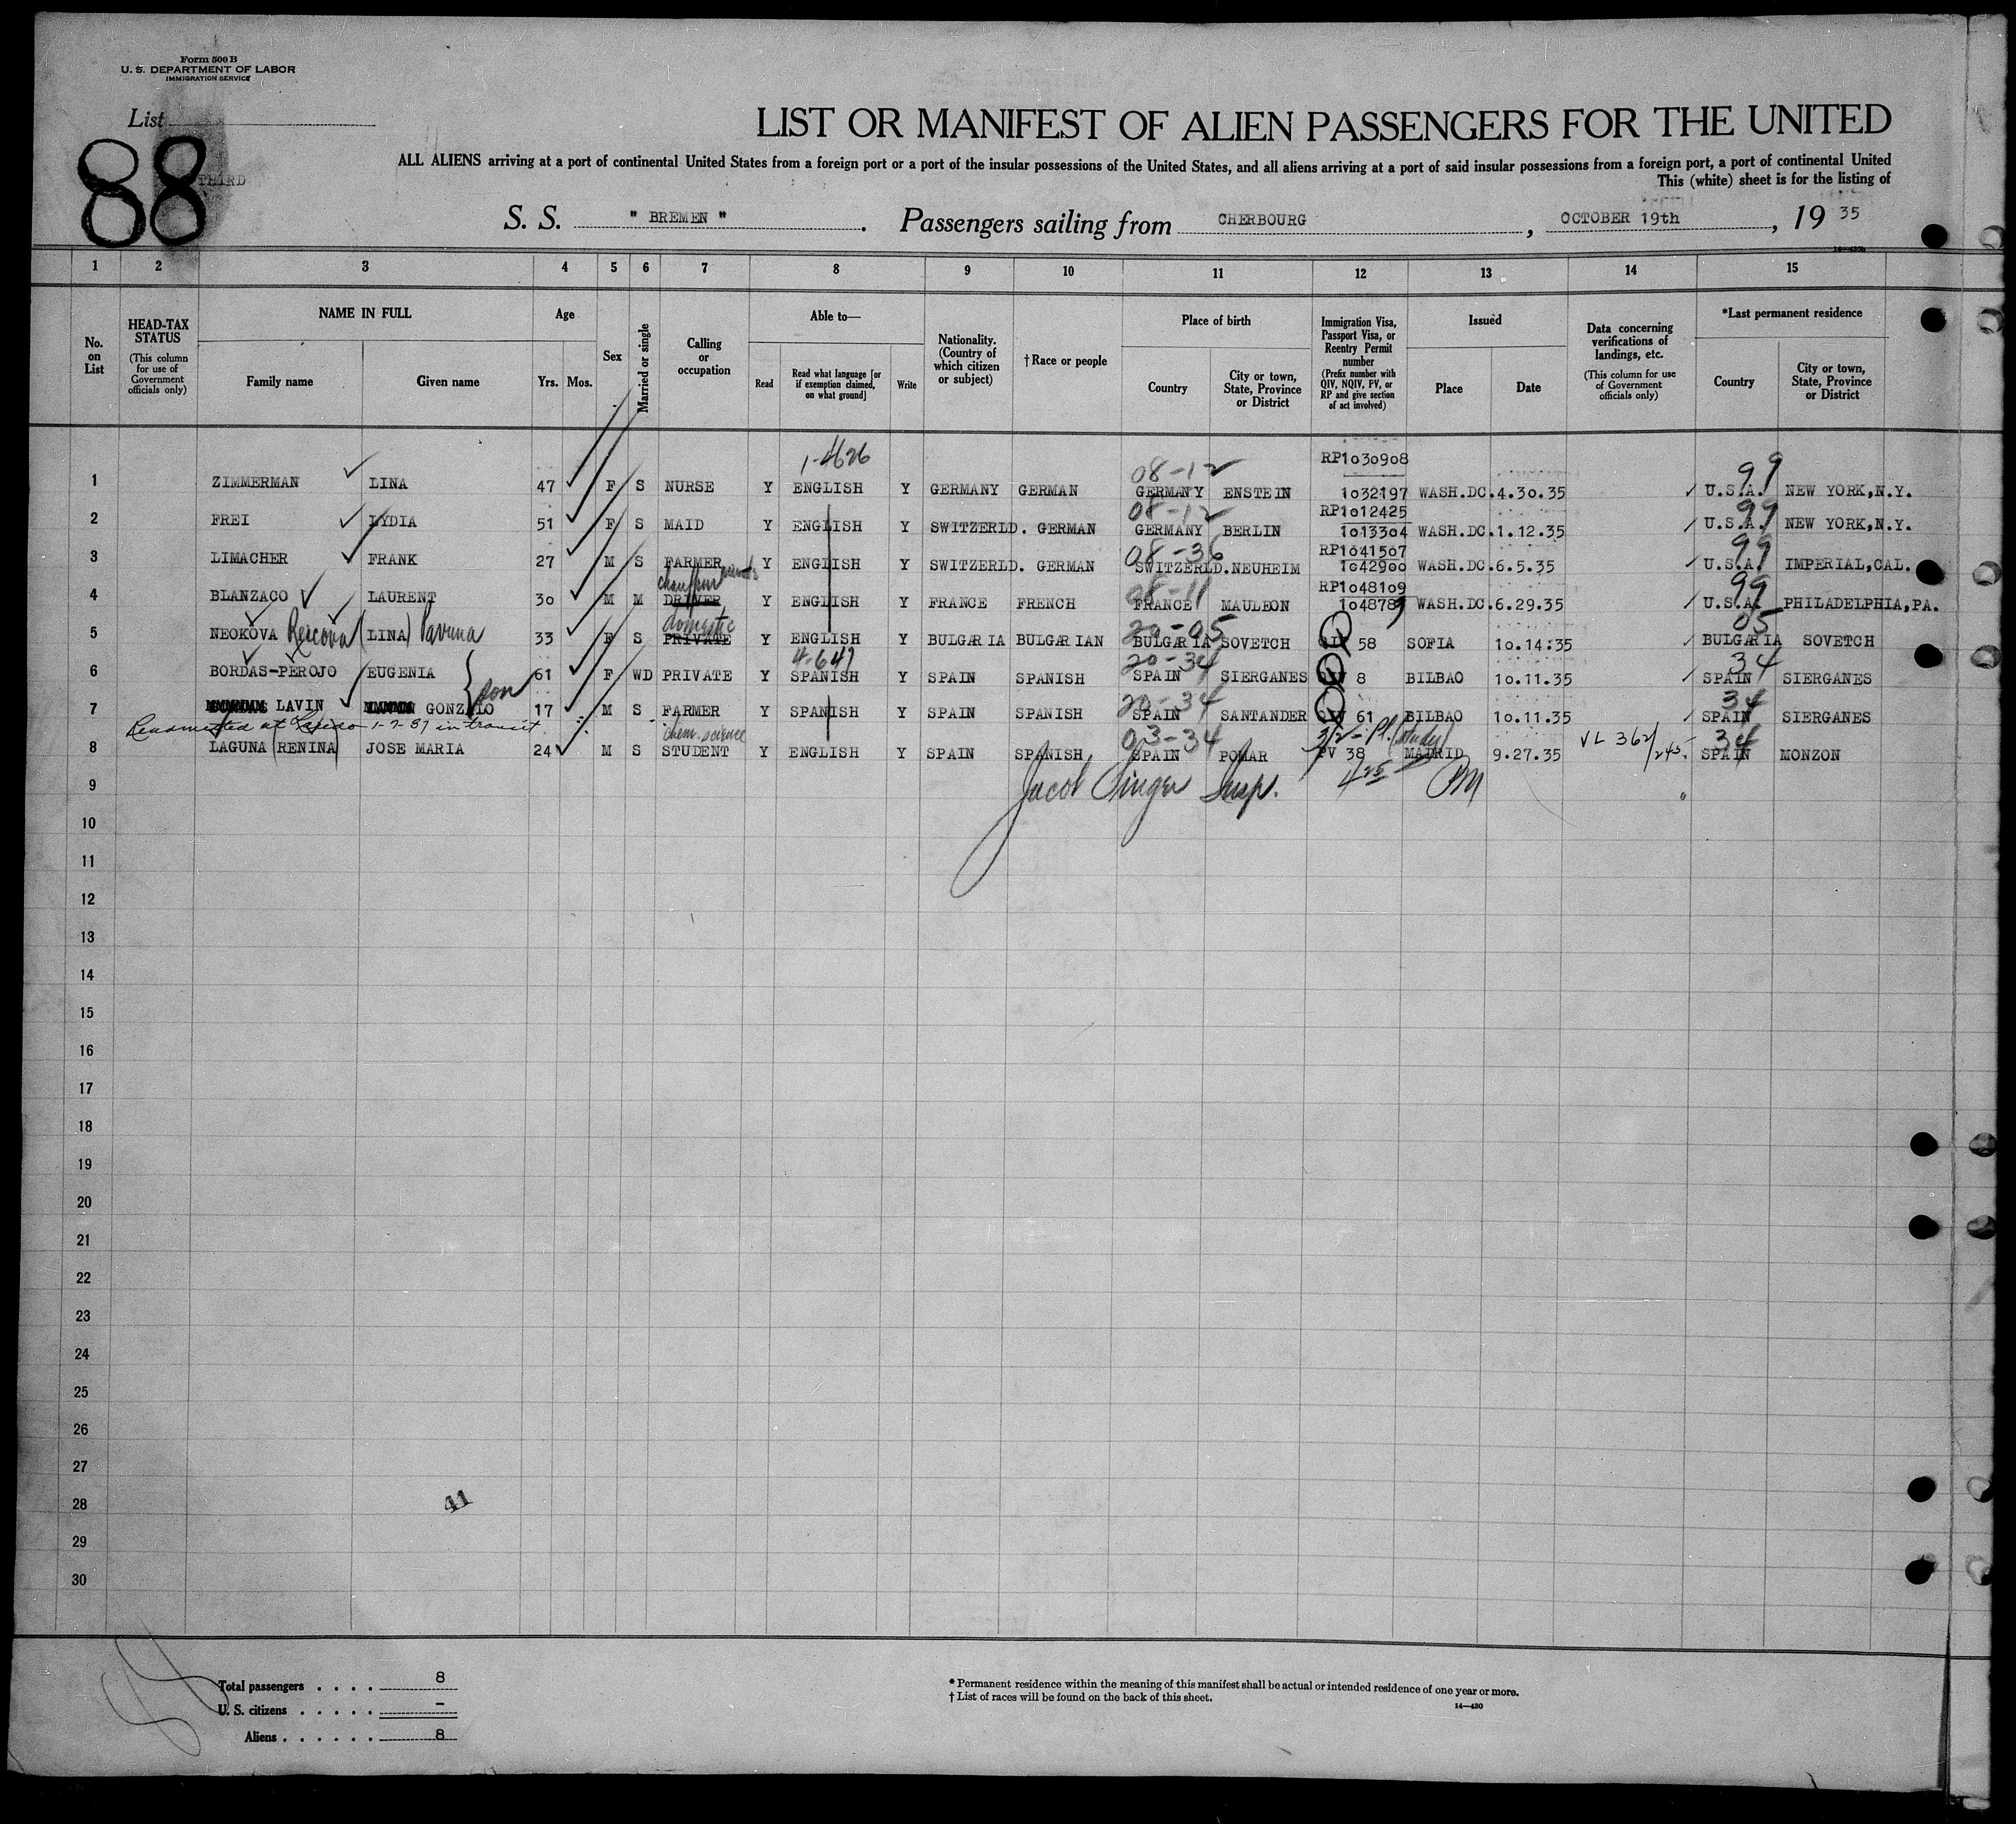 Form 500 B
U. S. DEPARTMENT OF LABOR
IMMIGRATION SERVICE
List
88
THIRD
LIST OR MANIFEST OF ALIEN PASSENGERS FOR THE UNITED
ALL ALIENS arriving at a port of continental United States from a foreign port or a port of the insular possessions of the United States, and all aliens arriving at a port of said insular possessions from a foreign port, a port of continental United
This (white) sheet is for the listing of
S. S. " BREMEN ". Passengers sailing from CHERBOURG, OCTOBER 19th, 19 35
1 2 3 4 5 6 7 8 9 10 11 12 13 14 15
No. on List
HEAD-TAX STATUS (This column for use of Government officials only)
NAME IN FULL
Family name Given name
Age
Yrs. Mos.
Sex
Married or single
Calling or occupation
Able to—
Read
Read what language [or if exemption claimed, on what ground]
Write
Nationality. (Country of which citizen or subject)
†Race or people
Place of birth
Country
City or town, State, Province or District
Immigration Visa, Passport Visa, or Reentry Permit number (Prefix number with QIV, NQIV, PV, or RP and give section of act involved)
Issued
Place Date
Data concerning verifications of landings, etc. (This column for use of Government officials only)
*Last permanent residence
Country
City or town, State, Province or District
1-4626 08-12 RP1030908 99
1 ZIMMERMAN LINA 47 F S NURSE Y ENGLISH Y GERMANY GERMAN GERMANY ENSTEIN 1032197 WASH.DC.4.30.35 U.S.A. NEW YORK,N.Y.
08-12 RP1012425 99
2 FREI LYDIA 51 F S MAID Y ENGLISH Y SWITZERLD. GERMAN GERMANY BERLIN 1013304 WASH.DC.1.12.35 U.S.A. NEW YORK,N.Y.
08-36 RP1041507 99
3 LIMACHER FRANK 27 M S FARMER Y ENGLISH Y SWITZERLD. GERMAN SWITZERLD.NEUHEIM 1042900 WASH.DC.6.5.35 U.S.A. IMPERIAL,CAL.
08-11 RP1048109 99
4 BLANZACO LAURENT 30 M M DRIVER Y ENGLISH Y FRANCE FRENCH FRANCE MAULEON 104878 WASH.DC.6.29.35 U.S.A. PHILADELPHIA,PA.
domestic 20-05 05
5 NEOKOVA (LINA) 33 F S PRIVATE Y ENGLISH Y BULGARIA BULGARIAN BULGARIA SOVETCH 58 SOFIA 10.14.35 BULGARIA SOVETCH
4-641 20-34 34
6 BORDAS-PEROJO EUGENIA 61 F WD PRIVATE Y SPANISH Y SPAIN SPANISH SPAIN SIERGANES 8 BILBAO 10.11.35 SPAIN SIERGANES
son 20-34 34
7 LAVIN GONZALO 17 M S FARMER Y SPANISH Y SPAIN SPANISH SPAIN SANTANDER 61 BILBAO 10.11.35 SPAIN SIERGANES
Readmitted at Laredo 1-7-37 in transit chem. science 03-34 3/2 - Pl. (study) VL 362/245 34
8 LAGUNA (RENINA) JOSE MARIA 24 M S STUDENT Y ENGLISH Y SPAIN SPANISH SPAIN POMAR PV 38 MADRID 9.27.35 SPAIN MONZON
9 Jacob Singer Insp.
10
11
12
13
14
15
16
17
18
19
20
21
22
23
24
25
26
27
28
41
29
30
Total passengers . . . . 8
U. S. citizens . . . . . –
Aliens . . . . . . 8
* Permanent residence within the meaning of this manifest shall be actual or intended residence of one year or more.
† List of races will be found on the back of this sheet.
14—430